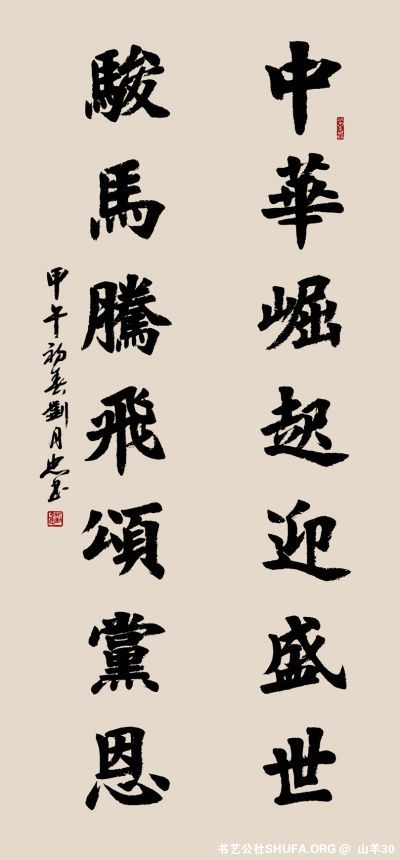 中華崛起迎盛世
駿馬騰飛頌黨恩
甲午初春劉月忠書
书艺公社SHUFA.ORG @ 山羊30